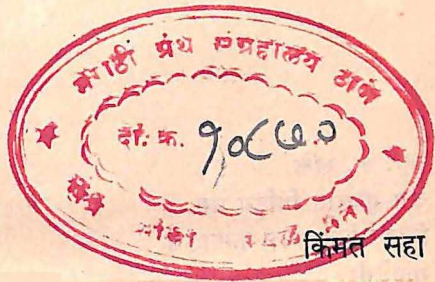 मराठी ग्रंथ संग्रहालय ठाणे
दा. क्र. १०८७०
किंमत सहा